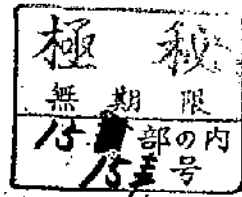 極秘
無期限
15部の内
15号